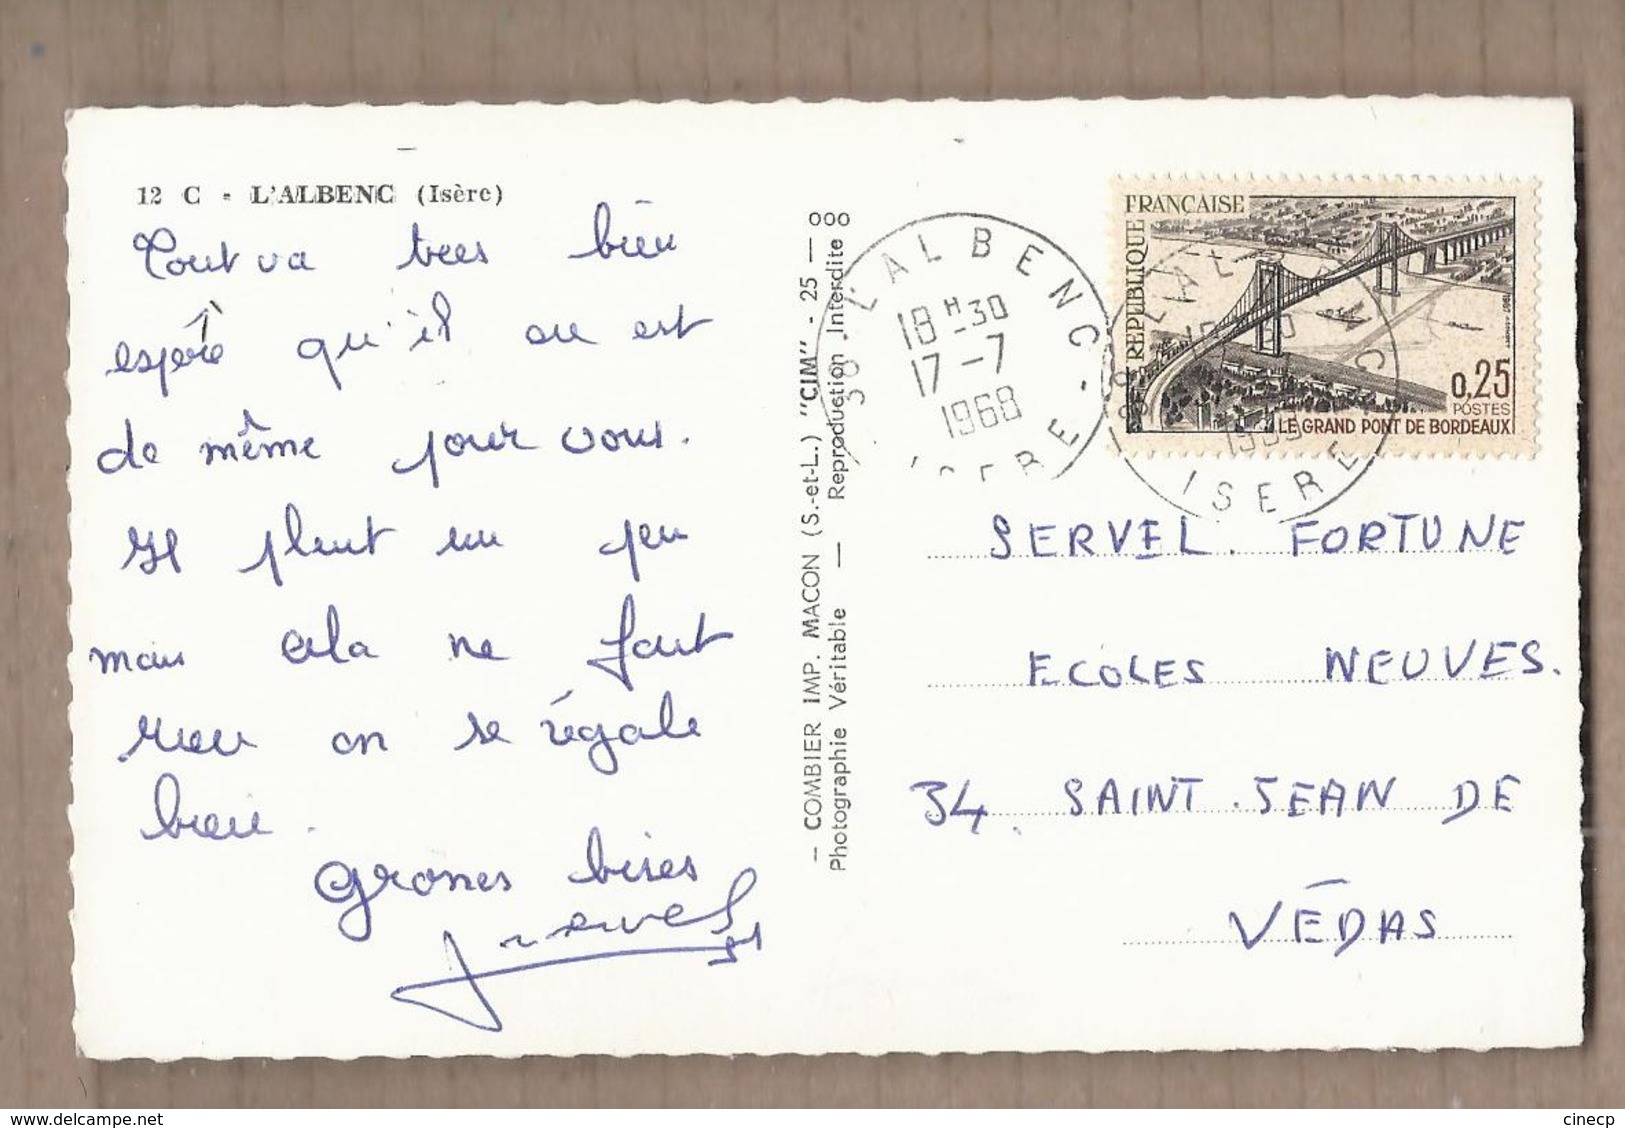 12 C - L'ALBENC (Isère)
Tout va trees bien
espère qu'il en est
de même pour vous.
Il pleut un peu
mais cela ne fait
rien on se régale
bien.
Grosses bises
— COMBIER IMP. MACON (S.-et-L.) "CIM" - 25 — 000
Photographie Véritable — Reproduction Interdite
38 L'ALBENC
18 H 30
17 - 7
1968
ISERE
REPUBLIQUE FRANÇAISE
0,25
POSTES
LE GRAND PONT DE BORDEAUX
L'ALBENC
ISERE
SERVEL. FORTUNE
ECOLES NEUVES.
34. SAINT. JEAN DE
VÉDAS
https://www.delcampe.net
cinecp